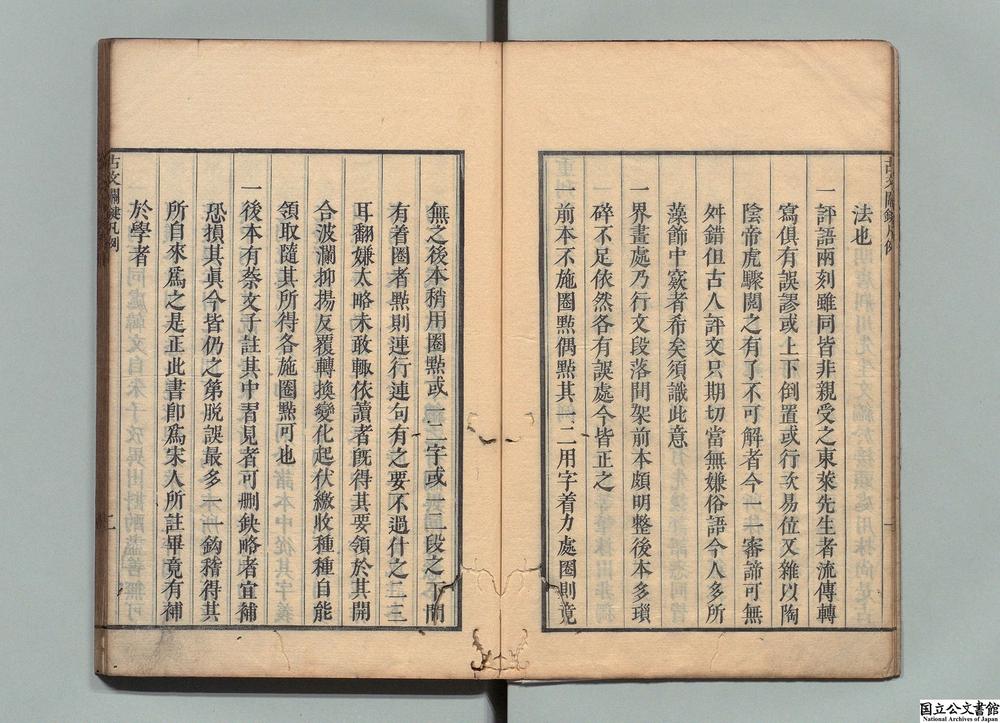 法也
一評語兩刻雖同皆非親受之東萊先生者流傳轉
寫俱有誤謬或上下倒置或行次易位又雜以陶
陰帝虎驟閱之有了不可解者今一一審諦可無
舛錯但古人評文只期切當無嫌俗語今人多所
藻飾中窾者希矣須識此意
一界畫處乃行文段落間架前本頗明整後本多瑣
碎不足依然各有誤處今皆正之
一前本不施圈㸃偶㸃其一二用字着力處圈則竟
古文關鍵凡例
一
無之後本稍用圈㸃或一二字或一二段之下間
有着圈者㸃則連行連句有之要不過什之二三
耳翻嫌太略未敢輙依讀者旣得其要領於其開
合波瀾抑揚反覆轉換變化起伏繳收種種自能
領取隨其所得各施圈㸃可也
一後本有蔡文子註其中習見者可刪缺略者宜補
恐損其眞今皆仍之第脫誤最多一一鈎稽得其
所自來爲之是正此書卽爲宋人所註畢竟有補
於學者
古文關鍵凡例
二
国立公文書館
National Archives of Japan